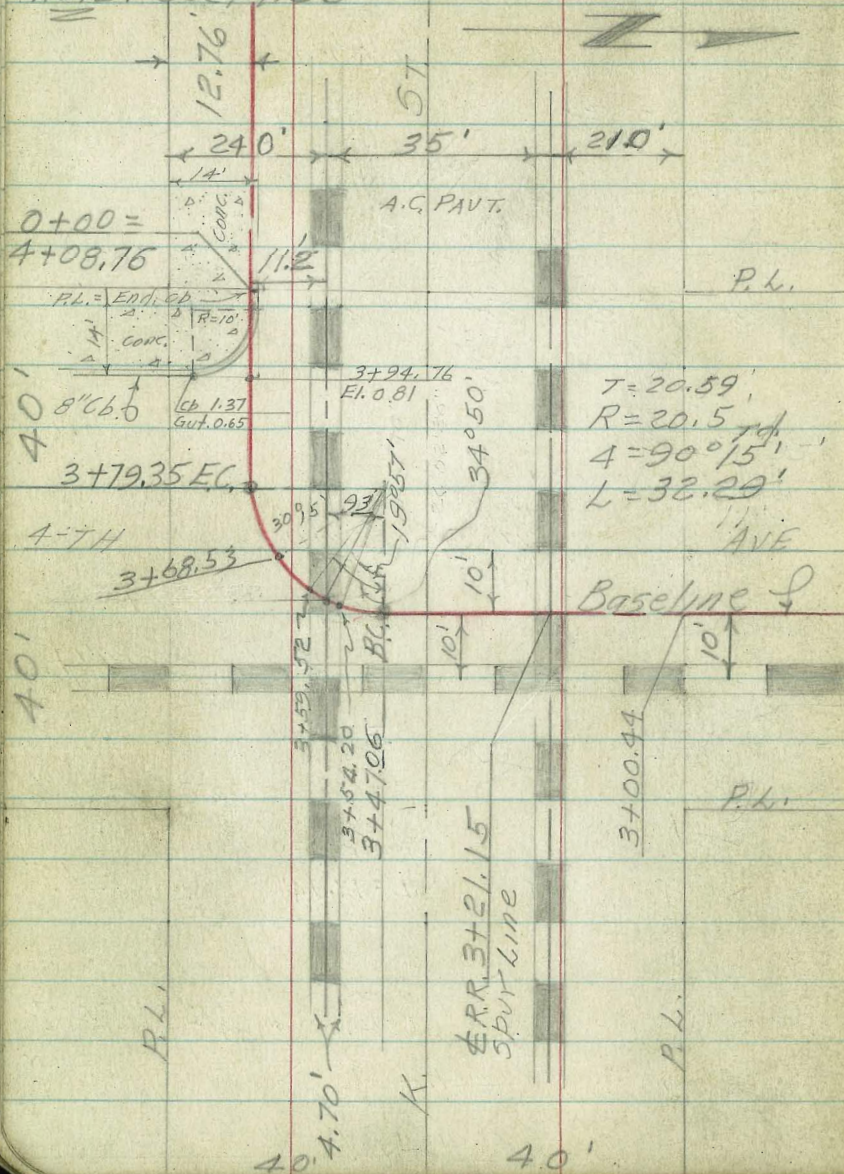 12.76'
ST
24.0'
35'
21.0'
14'
CONC.
A.C. PAVT.
0+00 =
4+08.76
11.2'
P.L.
P.L. = End. cb
R=10'
14'
CONC.
40'
8" Cb.
Cb 1.37
Gut. 0.65
3+94.76
El. 0.81
T=20.59'
R=20.5'
Δ=90°15'
L=32.29'
34°50'
3+79.35 E.C.
30°15'
93'
19°57'
4-TH
AVE
3+68.53
10'
Baseline
40'
B.C.
10'
10'
3+59.52
3+54.20
3+47.06
3+00.44
P.L.
℄ R.R. 3+21.15
Spur Line
P.L.
P.L.
4.70'
K.
40'
40'